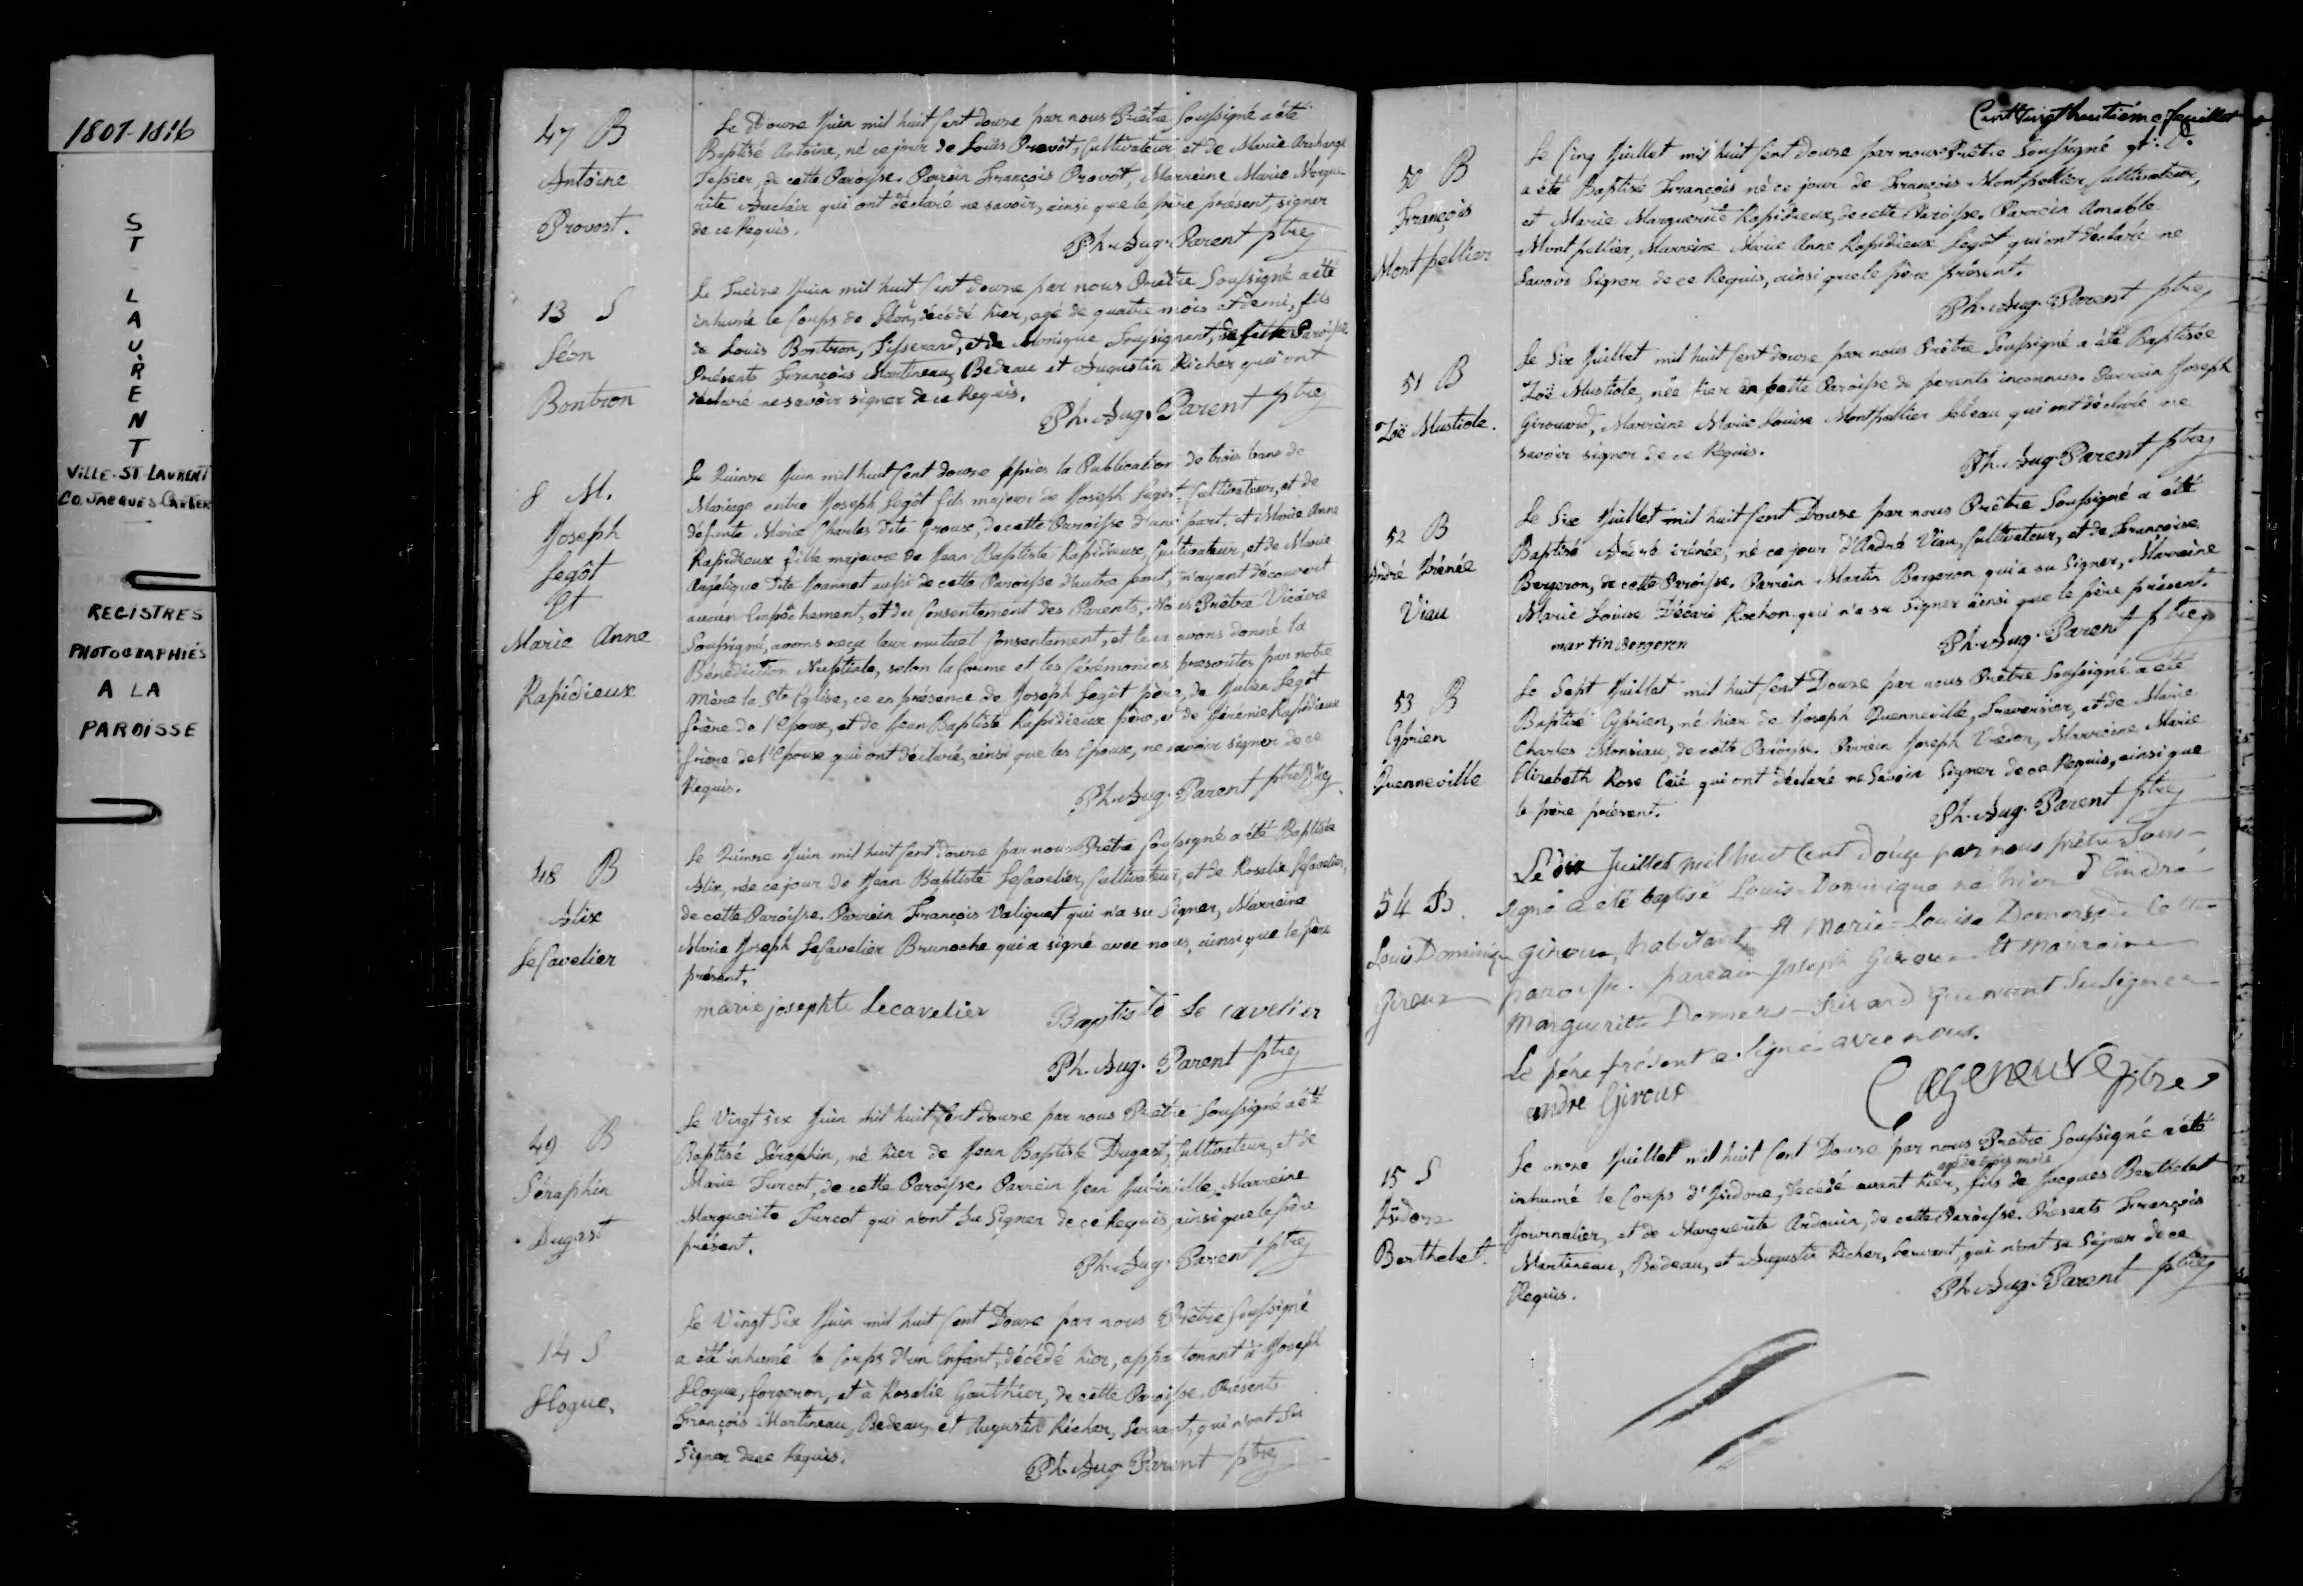 1807-1816
ST LAURENT
VILLE-ST LAURENT
CO. JACQUES-CARTIER
REGISTRES
PHOTOGRAPHIÉS
A LA
PAROISSE
47 B
Antoine
Provost.
Le Douze Juin mil huit Cent douze par nous Prêtre Soussigné a été
Baptisé Antoine, né ce jour de Louis Provôt, Cultivateur et de Marie Archange
Tessier, de cette Paroisse. Parrein François Provôt, Marreine Marie Margue-
rite Auclair qui ont déclaré ne savoir, ainsi que le père présent, signer
de ce Requis.
Ph. Aug. Parent ptre
13 S
Léon
Bontron
Le Treize Juin mil huit Cent douze par nous Prêtre Soussigné a été
inhumé le Corps de Léon, décédé hier, agé de quatre mois et demi, fils
de Louis Bontron, Tisserand, et de Monique Soussignant, de cette Paroisse
Présents François Martineau, Bedeau et Augustin Richer qui ont
déclaré ne savoir signer de ce Requis.
Ph. Aug. Parent ptre
8 M.
Joseph
Legôt
Et
Marie Anne
Rapidieux
Le Quinze Juin mil huit Cent douze après la Publication de trois bans de
Mariage entre Joseph Legôt fils majeur de Joseph Legôt, Cultivateur, et de
défunte Marie Charles dite Groux, de cette Paroisse d'une part, et Marie Anne
Rapidieux fille majeure de Jean Baptiste Rapidieux, Cultivateur, et de Marie
Angélique dite Joannet aussi de cette Paroisse d'autre part, n'ayant découvert
aucun Empêchement, et du Consentement des Parents, Nous Prêtre Vicaire
Soussigné, avons reçu leur mutuel Consentement, et leur avons donné la
Bénédiction Nuptiale, selon la forme et les Cérémonies prescrites par notre
Mère la Ste Eglise, ce en présence de Joseph Legôt père, de Julien Legôt
frère de l'Epoux, et de Jean Baptiste Rapidieux père, et de Jérémie Rapidieux
frère de l'Epouse qui ont déclaré, ainsi que les Epoux, ne savoir signer de ce
Requis.
Ph. Aug. Parent ptre Vic
48 B
Alix
LeCavelier
Le Quinze Juin mil huit Cent douze par nous Prêtre Soussigné a été Baptisée
Alix, née ce jour de Jean Baptiste LeCavelier, Cultivateur, et de Rosalie LeCavelier,
de cette Paroisse. Parrein François Valiquet qui n'a su Signer, Marreine
Marie Joseph LeCavelier Brunoche qui a signé avec nous, ainsi que le père
présent.
marie josephte Lecavelier
Baptiste Le cavelier
Ph. Aug. Parent ptre
49 B
Séraphin
Dugast
Le Vingt Six Juin mil huit Cent douze par nous Prêtre Soussigné a été
Baptisé Séraphin, né hier de Jean Baptiste Dugast, Cultivateur, et de
Marie Turcot, de cette Paroisse. Parrein Jean Jubinville, Marreine
Marguerite Turcot qui n'ont Su Signer de ce Requis, ainsi que le père
présent.
Ph. Aug. Parent ptre
14 S
Hogue.
Le Vingt Six Juin mil huit Cent Douze par nous Prêtre Soussigné
a été inhumé le Corps d'un Enfant, décédé hier, appartenant à Joseph
Hogue, forgeron, et à Rosalie Gauthier, de cette Paroisse. Présents
François Martineau, Bedeau, et Augustin Richer, Servant, qui n'ont Su
Signer de ce Requis.
Ph. Aug. Parent ptre
Cent vingt huitième feuillet
50 B
François
Montpellier
Le Cinq Juillet mil huit Cent douze par nous Prêtre Soussigné
a été Baptisé François né ce jour de François Montpellier, Cultivateur,
et Marie Marguerite Rapidieux, de cette Paroisse. Parrein Amable
Montpellier, Marreine Marie Anne Rapidieux Legôt qui ont déclaré ne
Savoir Signer de ce Requis, ainsi que le père présent.
Ph. Aug. Parent ptre
51 B
Zoë Mustiole.
Le Six Juillet mil huit Cent douze par nous Prêtre Soussigné a été Baptisée
Zoë Mustiole, née hier en cette Paroisse de parents inconnus. Parrein Joseph
Girouard, Marreine Marie Louise Montpellier Lebeau qui ont déclaré ne
savoir signer de ce Requis.
Ph. Aug. Parent ptre
52 B
André Irénée
Viau
Le Six Juillet mil huit Cent Douze par nous Prêtre Soussigné a été
Baptisé André irénée, né ce jour d'André Viau, Cultivateur, et de Françoise
Bergeron, de cette Paroisse, Parrein Martin Bergeron qui a su Signer, Marreine
Marie Louise Décari Rochon qui n'a su Signer ainsi que le père présent.
martin bergeron
Ph. Aug. Parent ptre
53 B
Cyprien
Quenneville
Le Sept Juillet mil huit Cent Douze par nous Prêtre Soussigné a été
Baptisé Cyprien, né hier de Joseph Quenneville, Traversier, et de Marie
Charles Monsiau, de cette Paroisse. Parrein Joseph Verdon, Marreine Marie
Elizabeth Rose Caië qui ont déclaré ne Savoir Signer de ce Requis, ainsi que
le père présent.
Ph. Aug. Parent ptre
54 B.
Louis Dominique
Giroux
Le dix Juillet mil huit Cent douze par nous prêtre Sous-
signé a été baptisé Louis-Dominique né hier d'André
Giroux, habitant et Marie-Louise Demers de Cette
paroisse. parrain Joseph Giroux et marraine
Marguerite Demers-Sicard qui n'ont Su Signer
Le père présent a Signé avec nous.
andre Giroux
Cazeneuve ptre
15 S
Isidore
Berthelet.
Le onze Juillet mil huit Cent Douze par nous Prêtre Soussigné a été
agé de trois mois
inhumé le Corps d'Isidore, décédé avant hier, fils de Jacques Berthelet
Journalier, et de Marguerite Ardouin, de cette Paroisse. Présents François
Martineau, Bedeau, et Augustin Richer, Servant, qui n'ont su Signer de ce
Requis.
Ph. Aug. Parent ptre